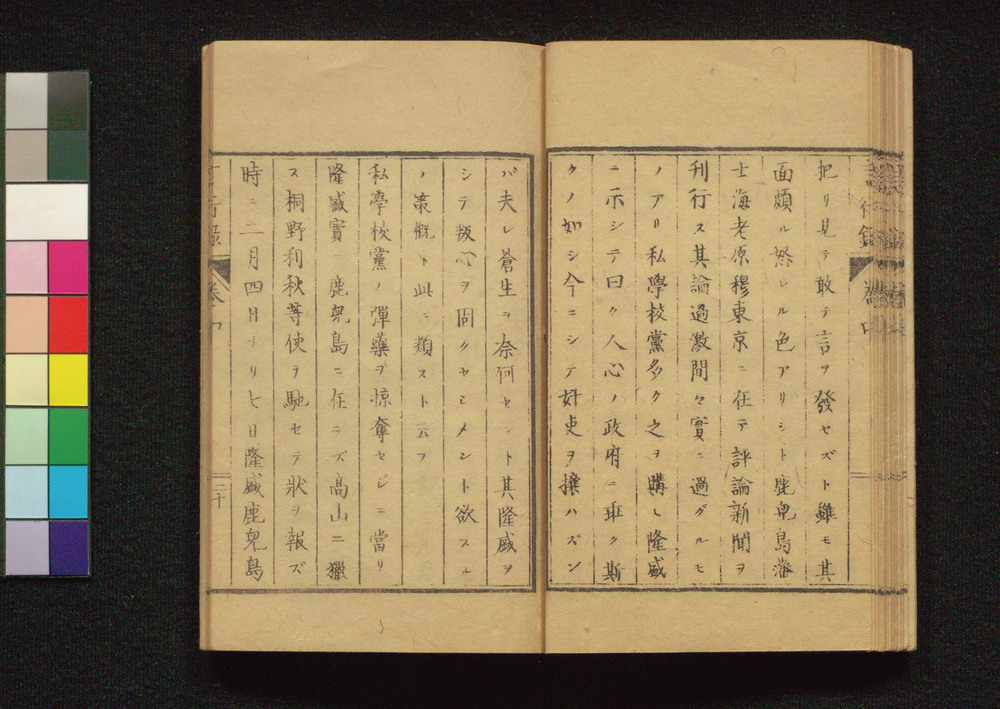 把リ見テ敢テ言ヲ發セズト雖モ其
面頗ル怒レル色アリシト鹿兒島藩
士海老原穆東京ニ在テ評論新聞ヲ
刊行ス其論過激間々實ニ過グルモ
ノアリ私學校黨多ク之ヲ購し隆盛
ニ示シテ曰ク人心ノ政府ニ乖ク斯
クノ如シ今ニシテ奸吏ヲ攘ハズン
バ夫レ蒼生ヲ奈何セント其隆盛ヲ
シテ叛心ヲ固クセシメント欲スル
ノ策概ト此ニ類スト云フ
私學校黨ノ彈藥ヲ掠奪セシニ當リ
隆盛實ニ鹿兒島ニ在ラズ高山ニ獵
ス桐野利秋等使ヲ馳セテ狀ヲ報ズ
時ニ二月四日ナリ七日隆盛鹿兒島
二十